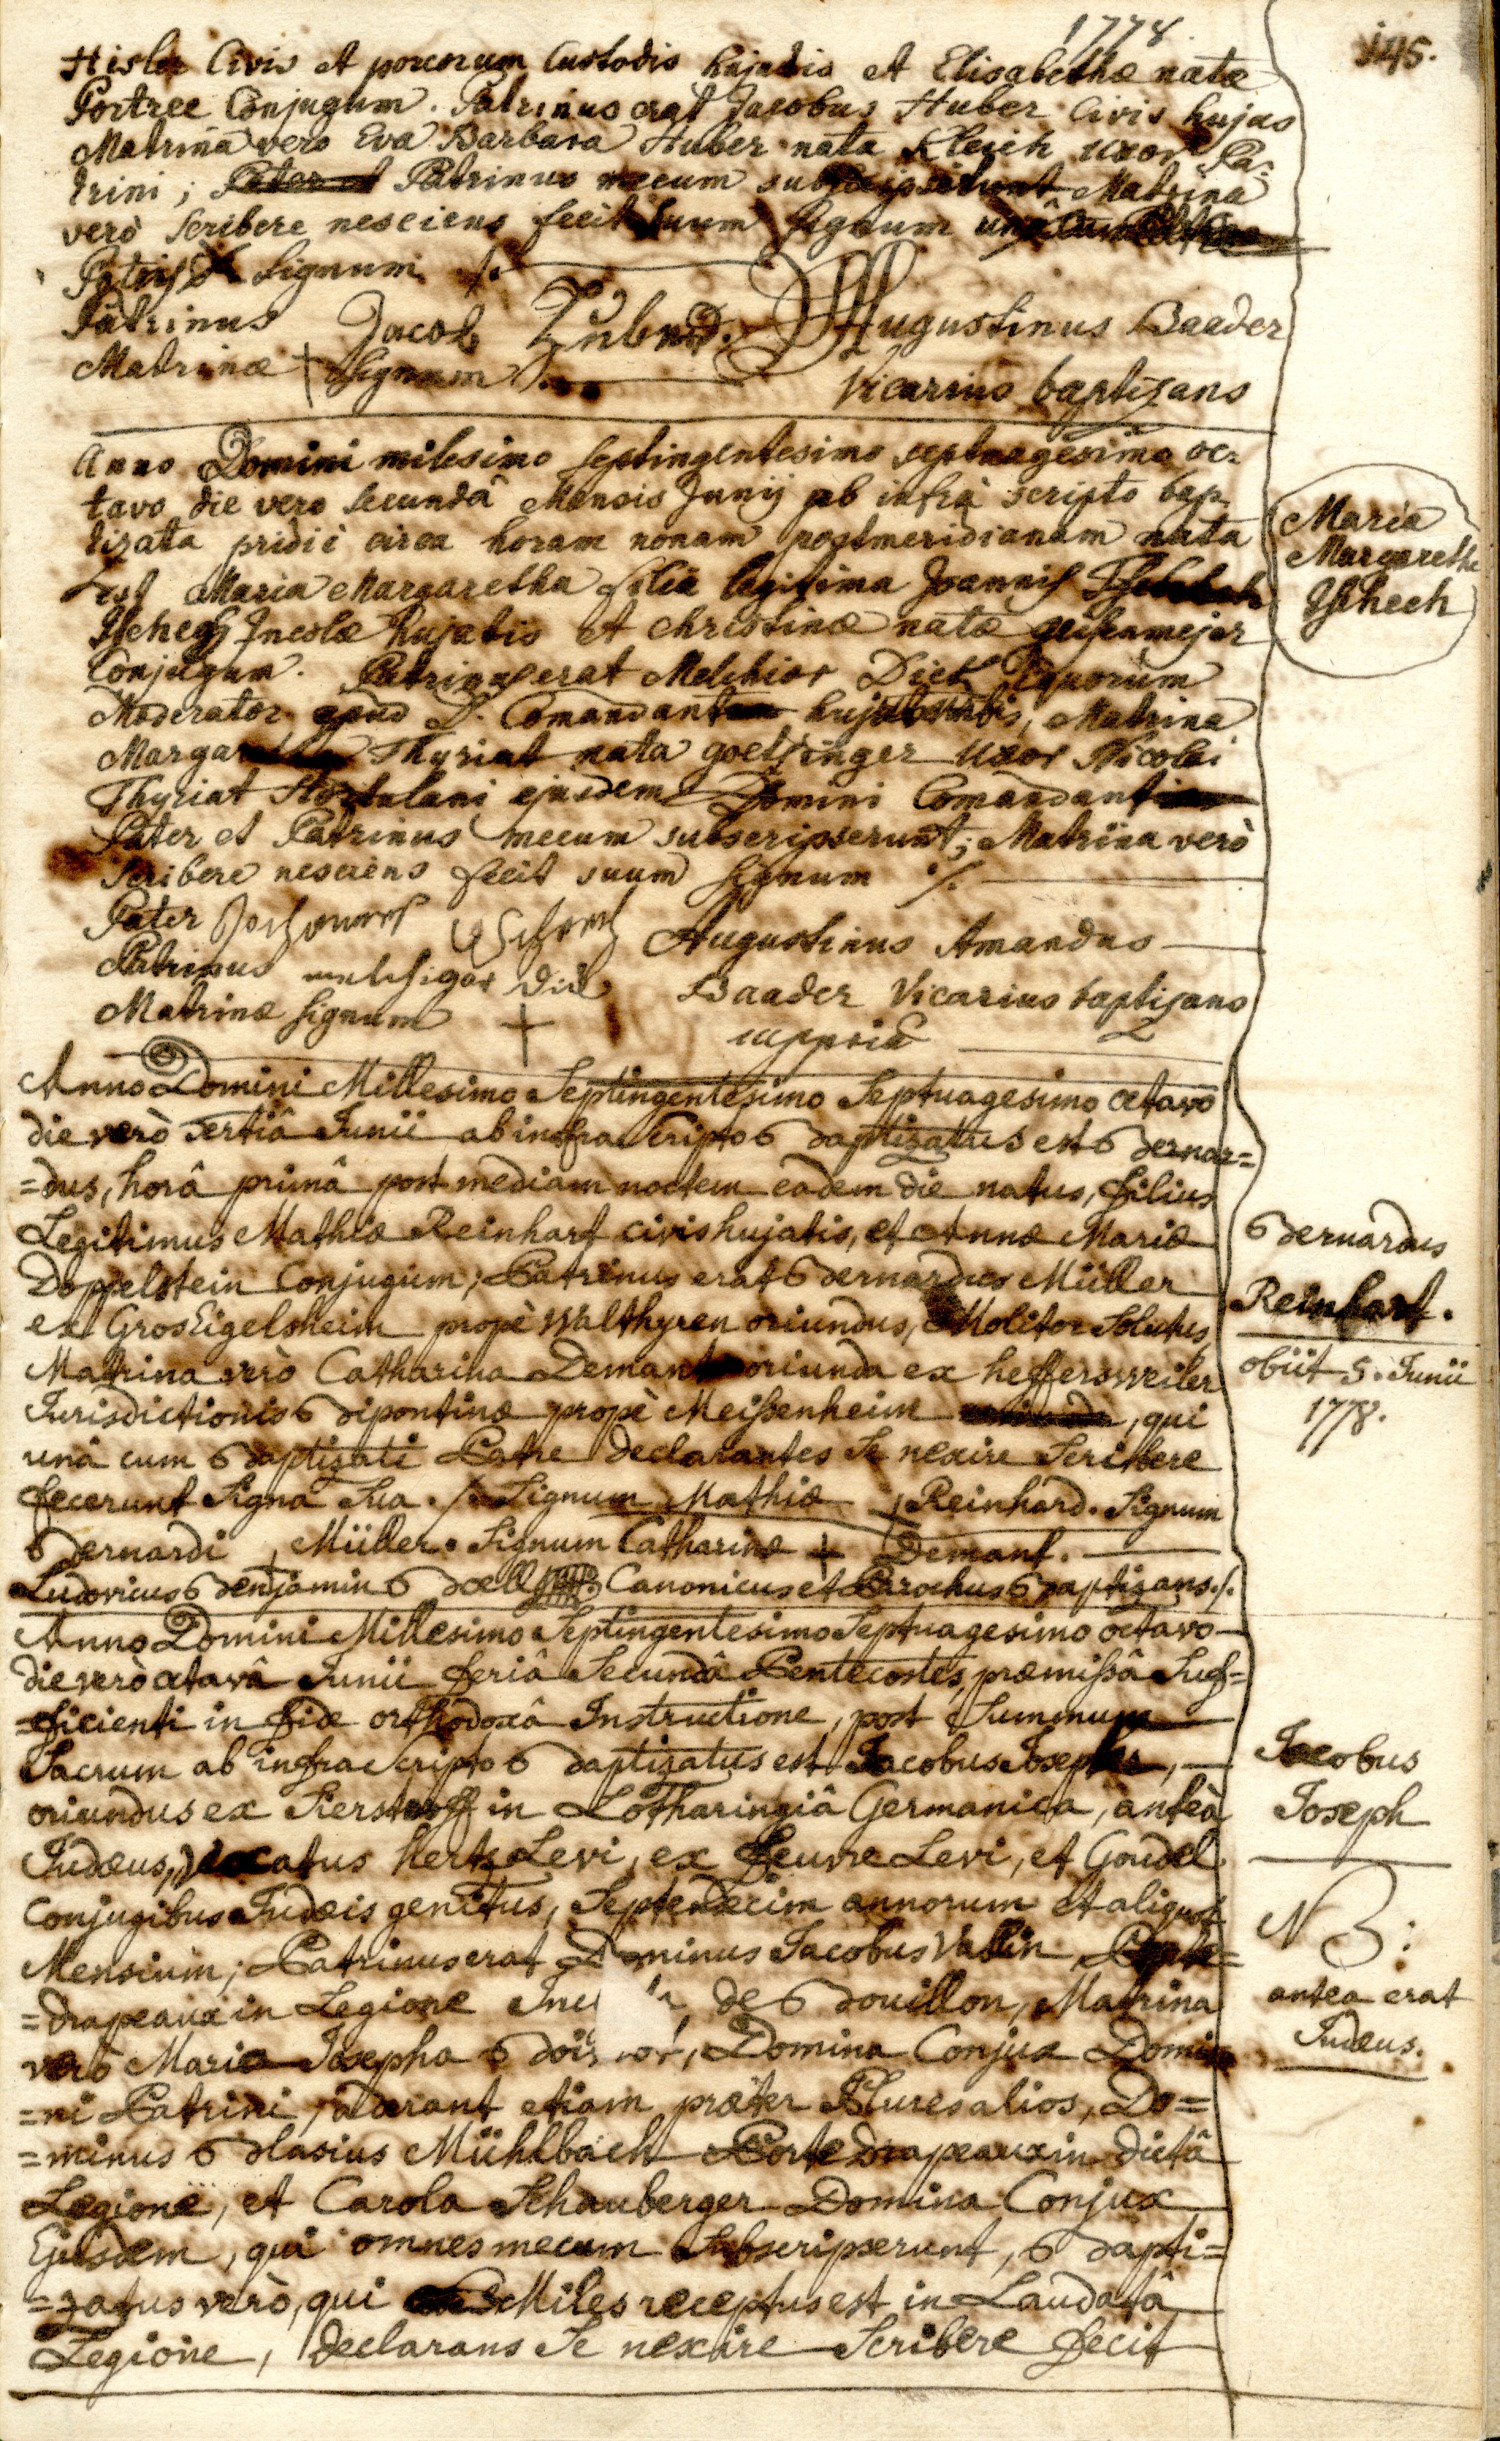 1778.
145.
Hisler Civis et porcorum Custodis hujatis et Elisabethæ natæ
Portree Conjugum. Patrinus erat Jacobus Huber Civis hujas
Matrina vero Eva Barbara Huber nata Kleich uxor Pa-
trini; Patrinus mecum Matrina
verò scribere nesciens fecit suum signum
Patris signum ./.
Patrinus Jacob Augustinus Baader
Matrinæ + signum Vicarius baptizans
Anno Domini milesimo septingentesimo septuagesimo oc-
tavo die vero secundâ Mensis Junij ab infrà scripto bap
tizata pridiè circa horam nonam postmeridianam nata
est Maria Margaretha filia legitima Joannis
Incolæ hujatis et christinæ natæ geisenmejer
Conjugum. Patrinus erat Melchior Diet Equorum
Moderator apud D. Comandant Matrina
Thyriat nata goetzinger uxor Nicolai
Thyriat Hortulani ejusdem Domini Comandant
Pater et Patrinus mecum subscripserunt; Matrina verò
scribere nesciens fecit suum signum ./.
Pater Augustinus Amandus
Patrinus Baader Vicarius baptizans
Matrinæ signum +
Maria
Margaretha
Tschech
Anno Domini Millesimo Septingentesimo Septuagesimo octavo
die verò tertiâ Junii ab infra scripto Baptizatus est Bernar=
=dus, horâ primâ post mediam noctem eâdem die natus, filius
Legitimus Mathiæ Reinhart civis hujatis, et Annæ Mariæ
Doppelstein Conjugum; Patrinus erat Bernardus Müller
ex GrosEigelsheim propè Walthyren oriundus, Molitor Solutus,
Matrina verò Catharina Demant oriunda ex heffersweiler
Jurisdictionis Bipontinæ propè Meißenheim , qui
unâ cum Baptizati Patre declarantes Se nescire Scribere
fecerunt Signa Sua ./. Signum Mathiæ + Reinhard. Signum
Bernardi + Müller. Signum Catharinæ + Demant.
Ludovicus Benjamin Boell Canonicus et Parochus Baptizans ./.
Bernardus
Reinhart.
obiit 5. Junii
1778.
Anno Domini Millesimo Septingentesimo Septuagesimo octavo
die verò octavâ Junii feriâ Secundâ Pentecostes, præmißâ Suf=
=ficienti in fide orthodoxâ Instructione, post Summum
Sacrum ab infra scripto Baptizatus est Jacobus Josephus,
oriundus ex Sierstroff in Lotharingiâ Germanica, anteà
Judæus, vocatus hertz Levi, ex feuvre Levi, et Goudel
Conjugibus Judæis genitus, Septendecim annorum et aliquot
Mensium; Patrinus erat Dominus Jacobus Vallin Porte=
=drapeaux in Legione de Bouillon, Matrina
verò Maria Josepha Domina Conjux Domi
=ni Patrini, aderant etiam præter Plures alios, Do=
=minus Blasius Mühlbach Porte drapeaux in dictâ
Legione, et Carola Schauberger Domina Conjux
Ejusdem, qui omnes mecum Subscripserunt, Bapti=
=zatus verò, qui Miles receptus est in Laudatâ
Legione, declarans Se nescire Scribere fecit
Jacobus
Joseph
NB:
antea erat
Judæus.